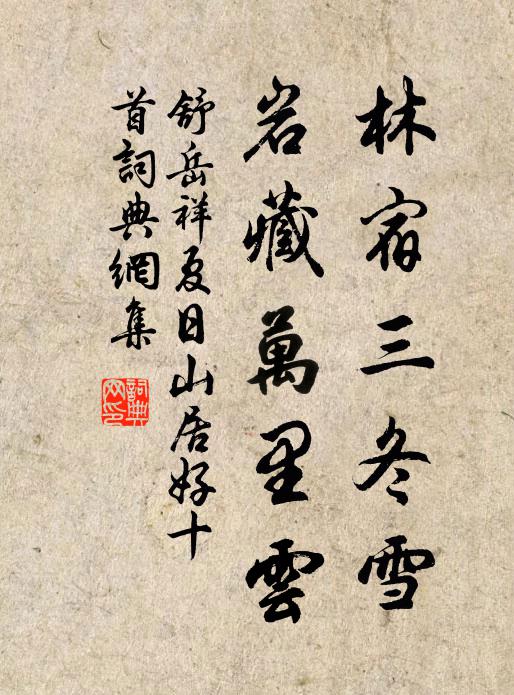 林宿三冬雪
岩藏萬里雲
舒岳祥夏日山居好十
首詞典網集
詞典
网印